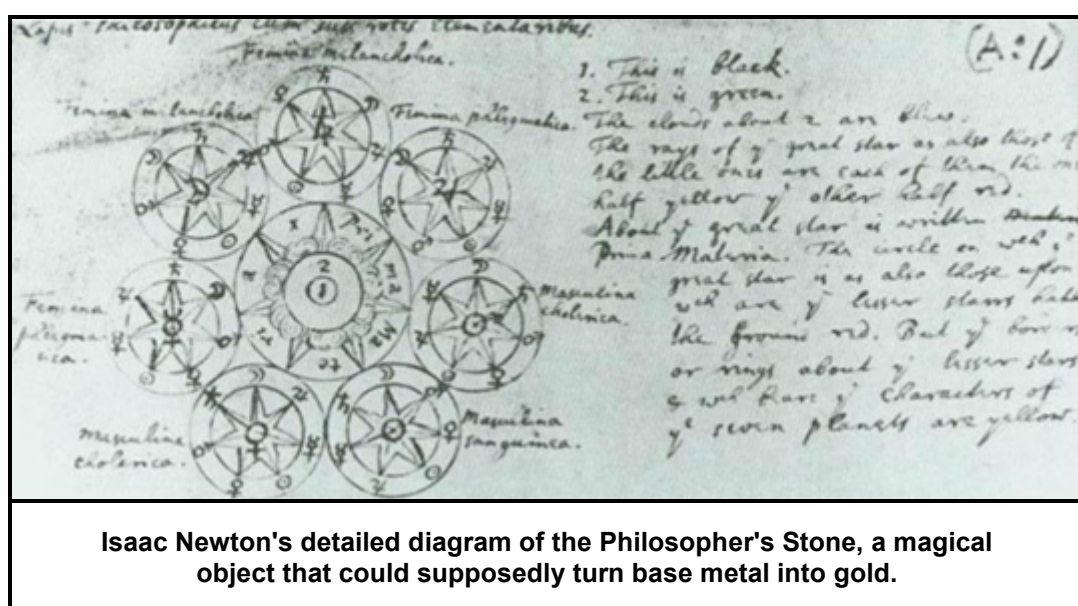 Lapis Philosophicus cum suis rotis elementaribus.
(A:1)
Femina melancholica.
Femina melancholica
Femina phlegmatica.
Femina
phlegma
tica.
Masculina
cholerica.
Masculina
cholerica.
Masculina
sanguinea.
2
1
Pri
ma
Ma
te
ri
a
1. This is black.
2. This is green.
The clouds about 2 are blew.
The rays of yͤ great star as also those of
the little ones are each of them the one
half yellow yͤ other half red.
About yͤ great star is written
Prima Materia. The circle on wch yͤ
great star is as also those upon
wch are yͤ lesser starrs have
the ground red. But yͤ borders
or rings about yͤ lesser stars
& wch bear yͤ characters of
yͤ seven planets are yellow.
Isaac Newton's detailed diagram of the Philosopher's Stone, a magical
object that could supposedly turn base metal into gold.